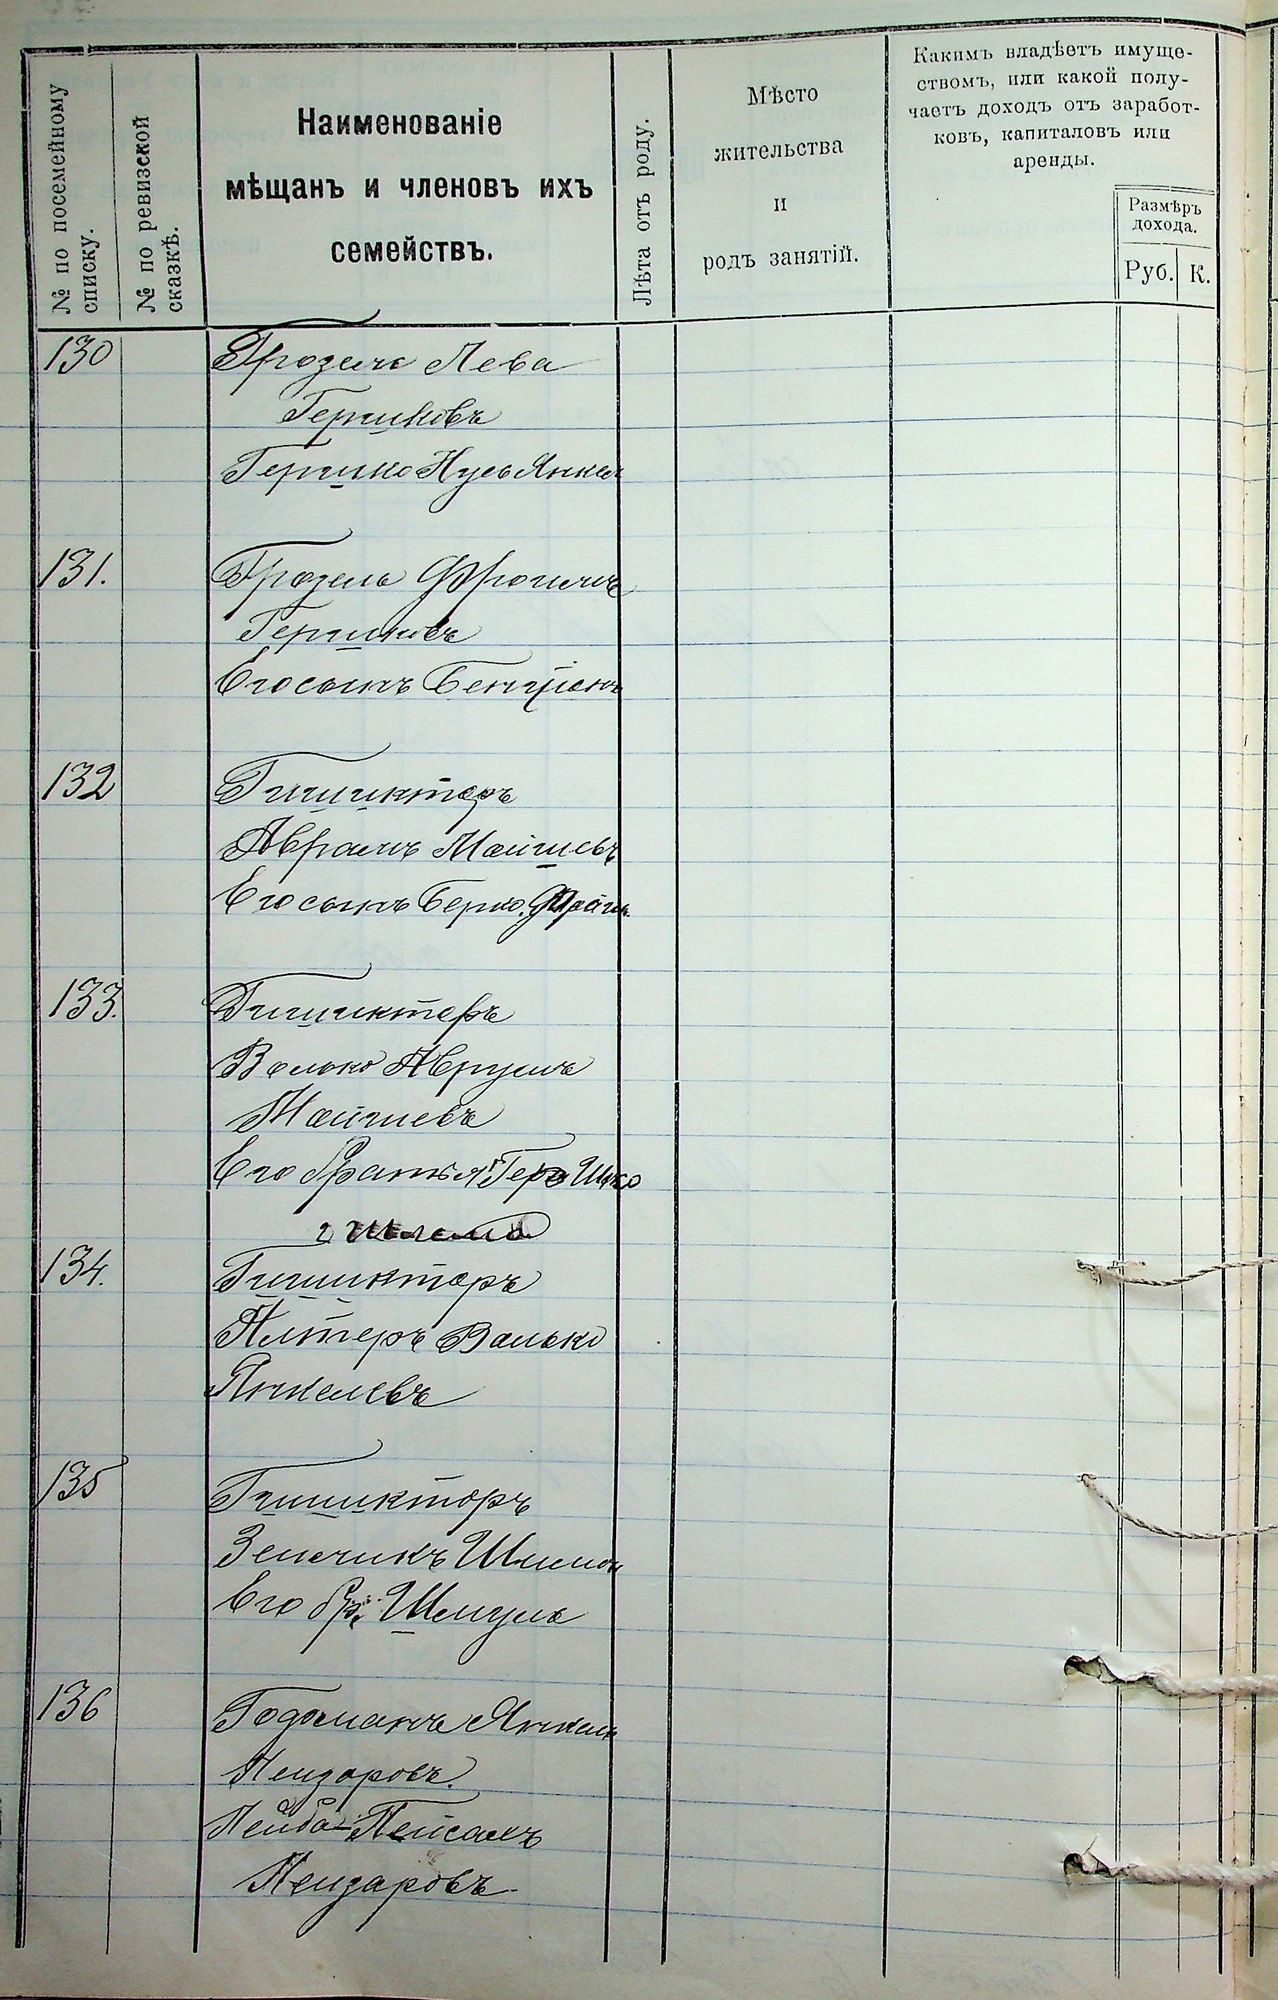 № по посемейному
списку.
№ по ревизской
сказкѣ.
Наименованіе
мѣщанъ и членовъ ихъ
семействъ.
Лѣта отъ роду.
Мѣсто
жительства
и
родъ занятій.
Какимъ владѣетъ имуще-
ствомъ, или какой полу-
чаетъ доходъ отъ заработ-
ковъ, капиталовъ или
аренды.
Размѣръ
дохода.
Руб.
К.
130
Грозель Лева
Гершковъ
Гершко Нусь Янкел
131.
Грозель Фроимъ
Гершковъ
Его сынъ Бенціонъ
132
Гишиктеръ
Аврамъ Мошіевъ
Его сынъ Берко.
133.
Гишиктеръ
Волько Аврумъ
Мошіевъ
Его братья Гершко
и Шлема
134.
Гишиктеръ
Алтеръ Валько
Янкелевъ
135
Гишикторъ
Зельчикъ Шлемов
Его бр. Шмуль
136
Годоманъ Янкель
Лейзоровъ.
Лейба-Пейсахъ
Лейзаровъ